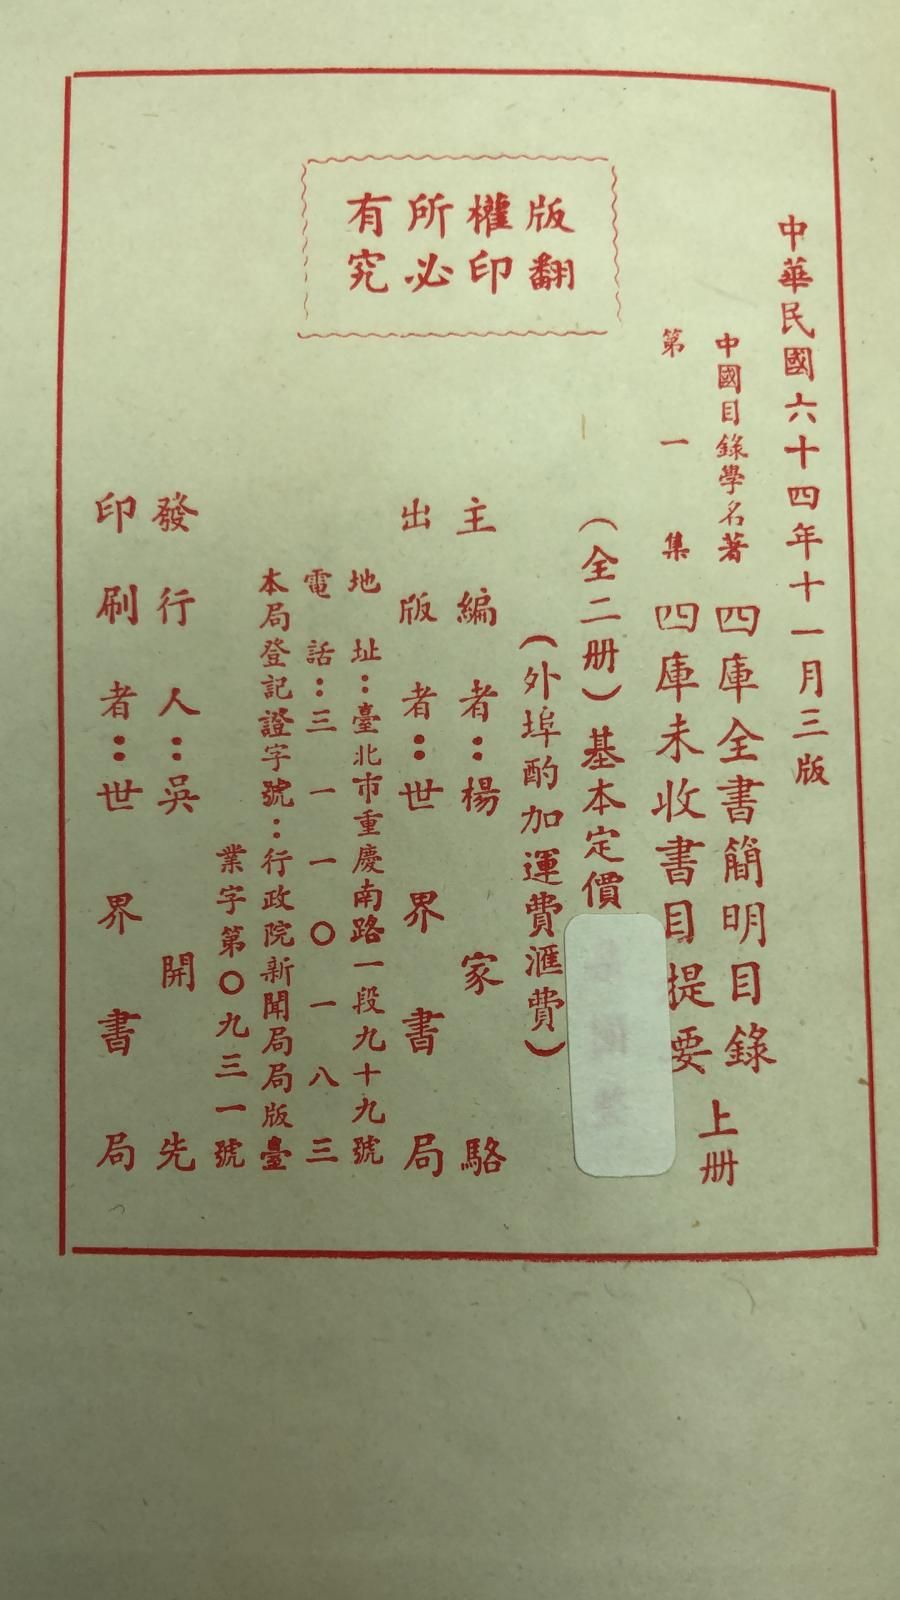 中華民國六十四年十一月三版
中國目錄學名著
第一集
四庫全書簡明目錄
四庫未收書目提要
上册
（全二册）基本定價
（外埠酌加運費滙費）
版權所有
翻印必究
主編者：楊家駱
出版者：世界書局
地址：臺北市重慶南路一段九十九號
電話：三一一〇一八三
本局登記證字號：行政院新聞局局版臺
業字第〇九三一號
發行人：吳開先
印刷者：世界書局